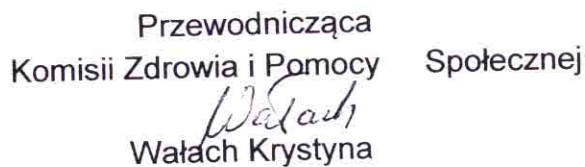 Przewodnicząca
Komisii Zdrowia i Pomocy Społecznej
Wałach
Wałach Krystyna